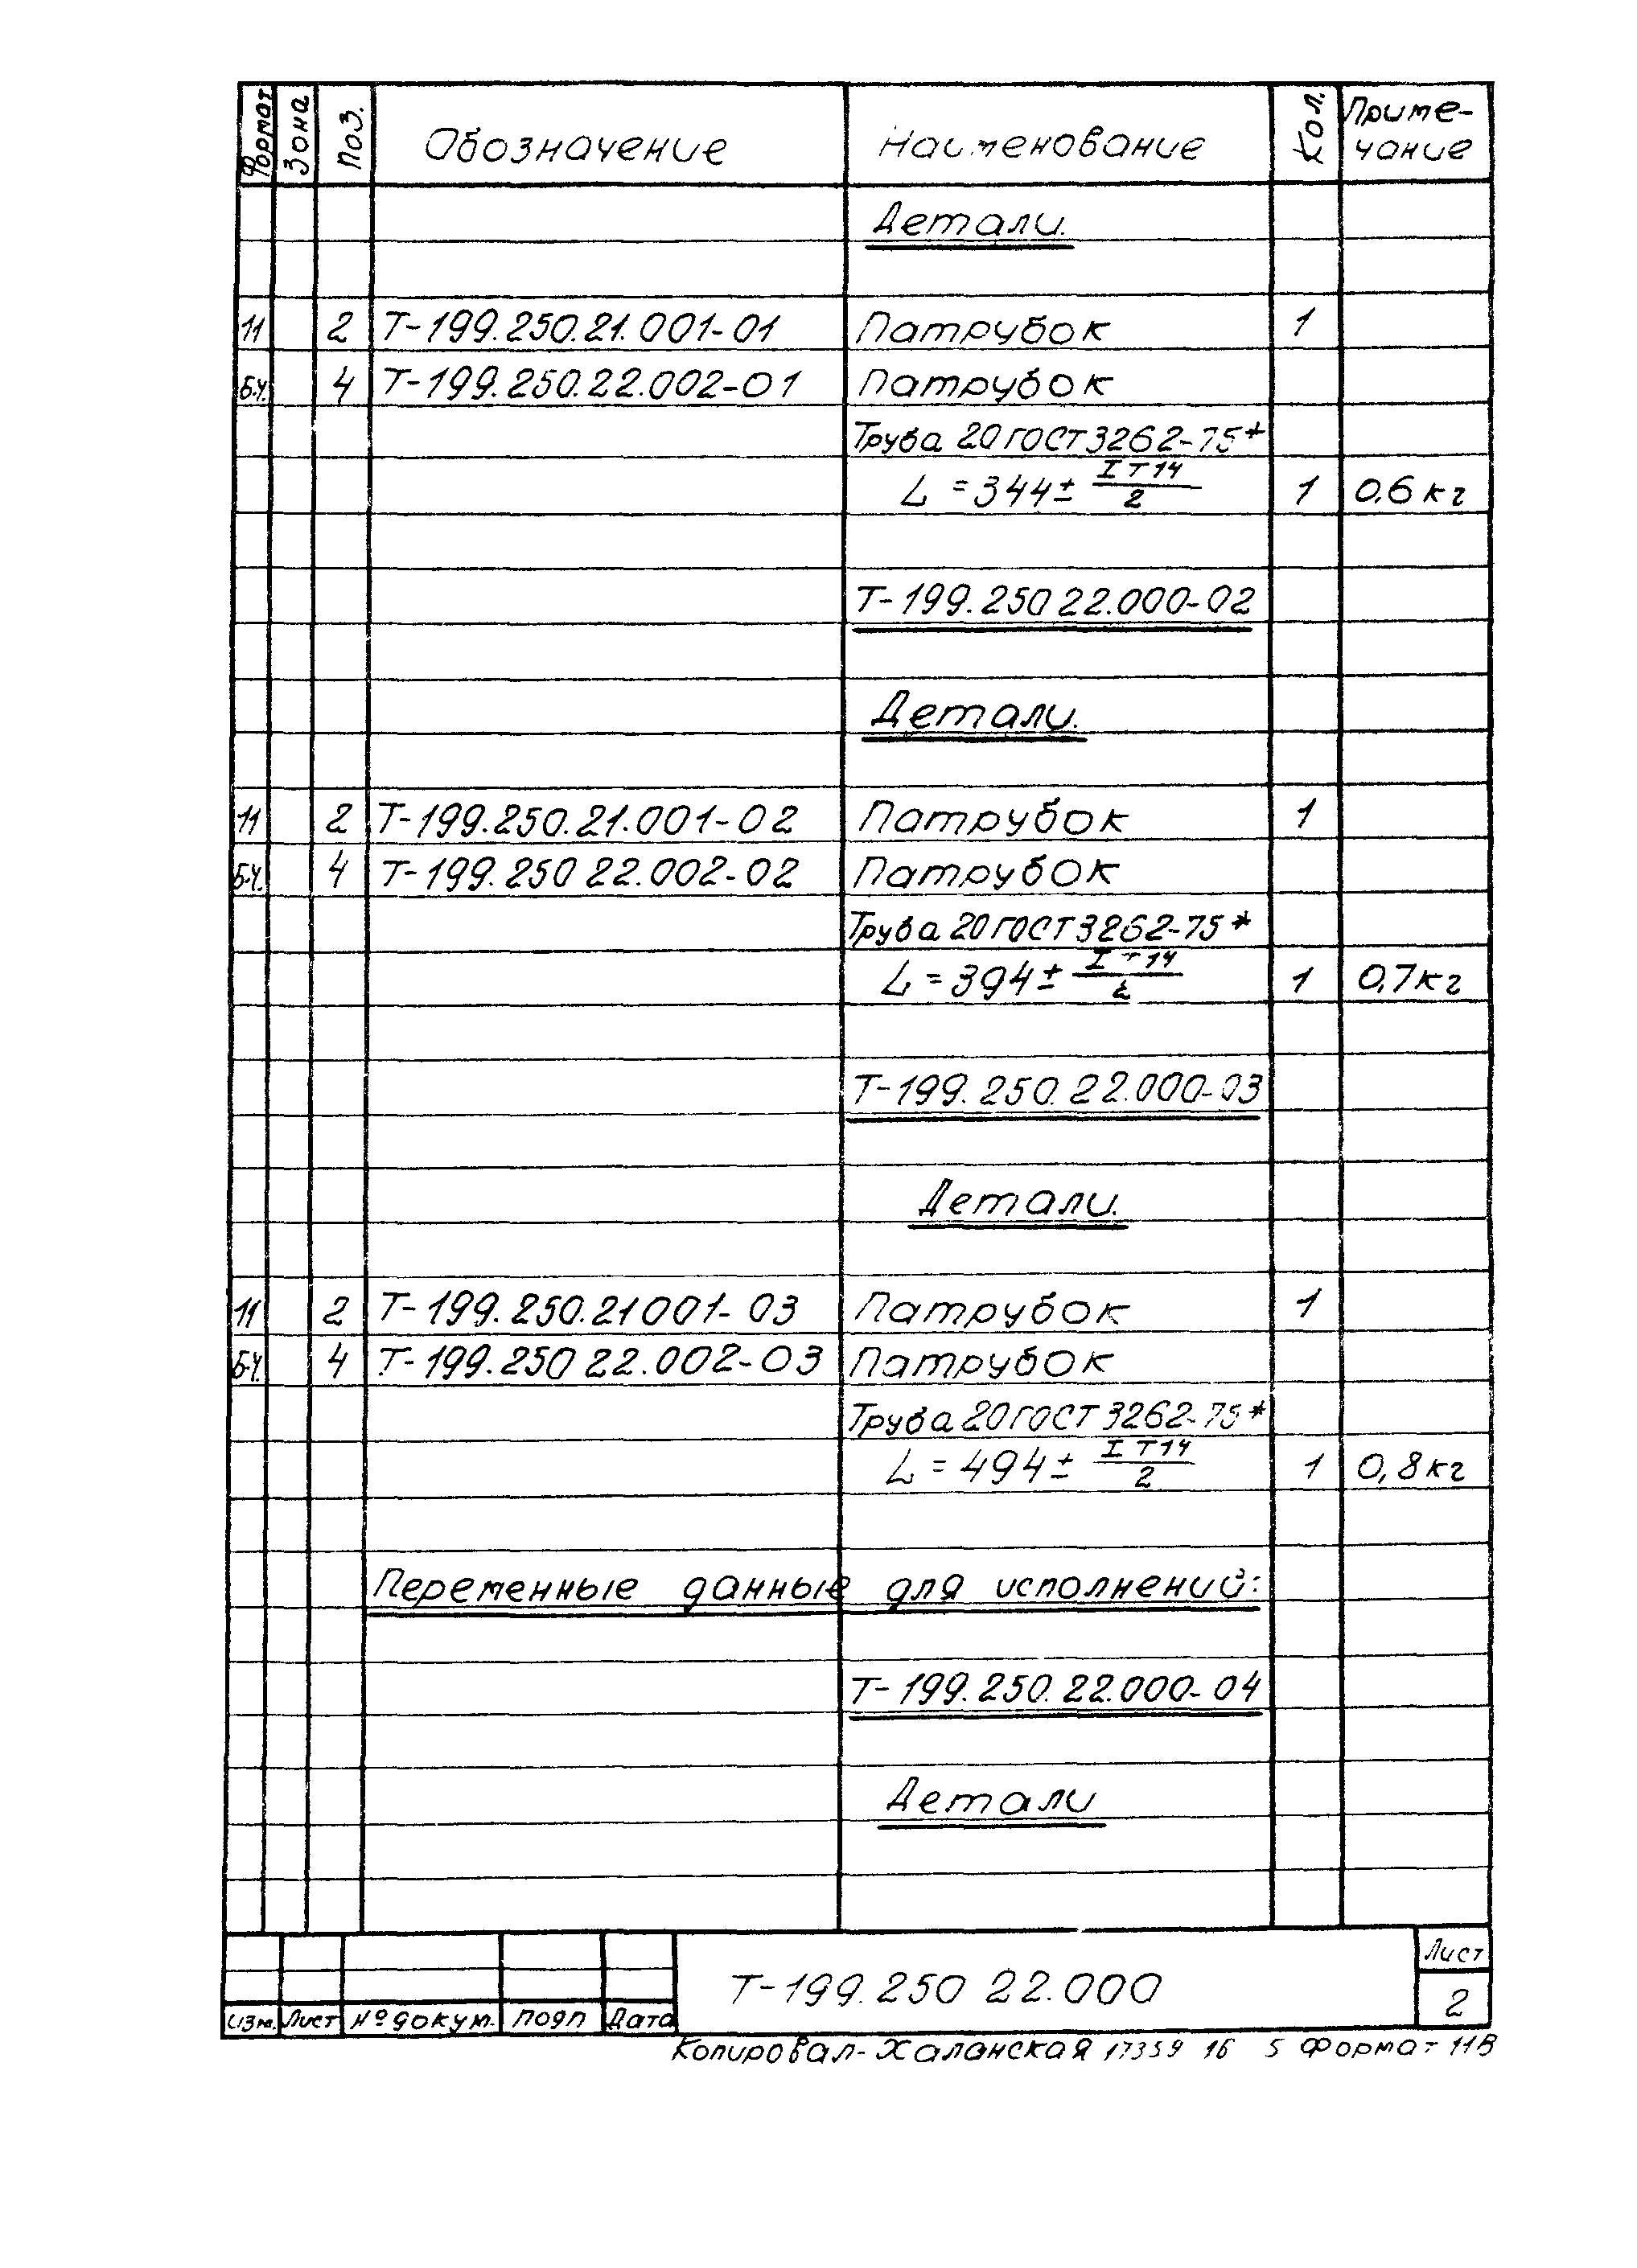 Формат Зона Поз. Обозначение Наименование Кол. Приме-
чание
Детали.
11 2 Т-199.250.21.001-01 Патрубок 1
Б.Ч. 4 Т-199.250.22.002-01 Патрубок
Труба 20 ГОСТ 3262-75*
L = 344 ± IT14/2 1 0.6 кг
Т-199.250 22.000-02
Детали.
11 2 Т-199.250.21.001-02 Патрубок 1
Б.Ч. 4 Т-199.250 22.002-02 Патрубок
Труба 20 ГОСТ 3262-75*
L = 394 ± IT14/2 1 0,7 кг
Т-199.250.22.000-03
Детали.
11 2 Т-199.250.21 001-03 Патрубок 1
Б.Ч. 4 Т-199.250 22.002-03 Патрубок
Труба 20 ГОСТ 3262-75*
L = 494 ± IT14/2 1 0,8 кг
Переменные данные для исполнений:
Т-199.250.22.000-04
Детали
Изм. Лист № докум. подп Дата
Т-199.250 22.000
Лист
2
Копировал-Халанская 17359 16 5 Формат 11В